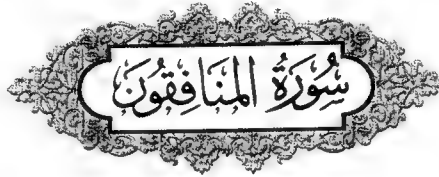 سُورَةُ المنَافِقُونَ